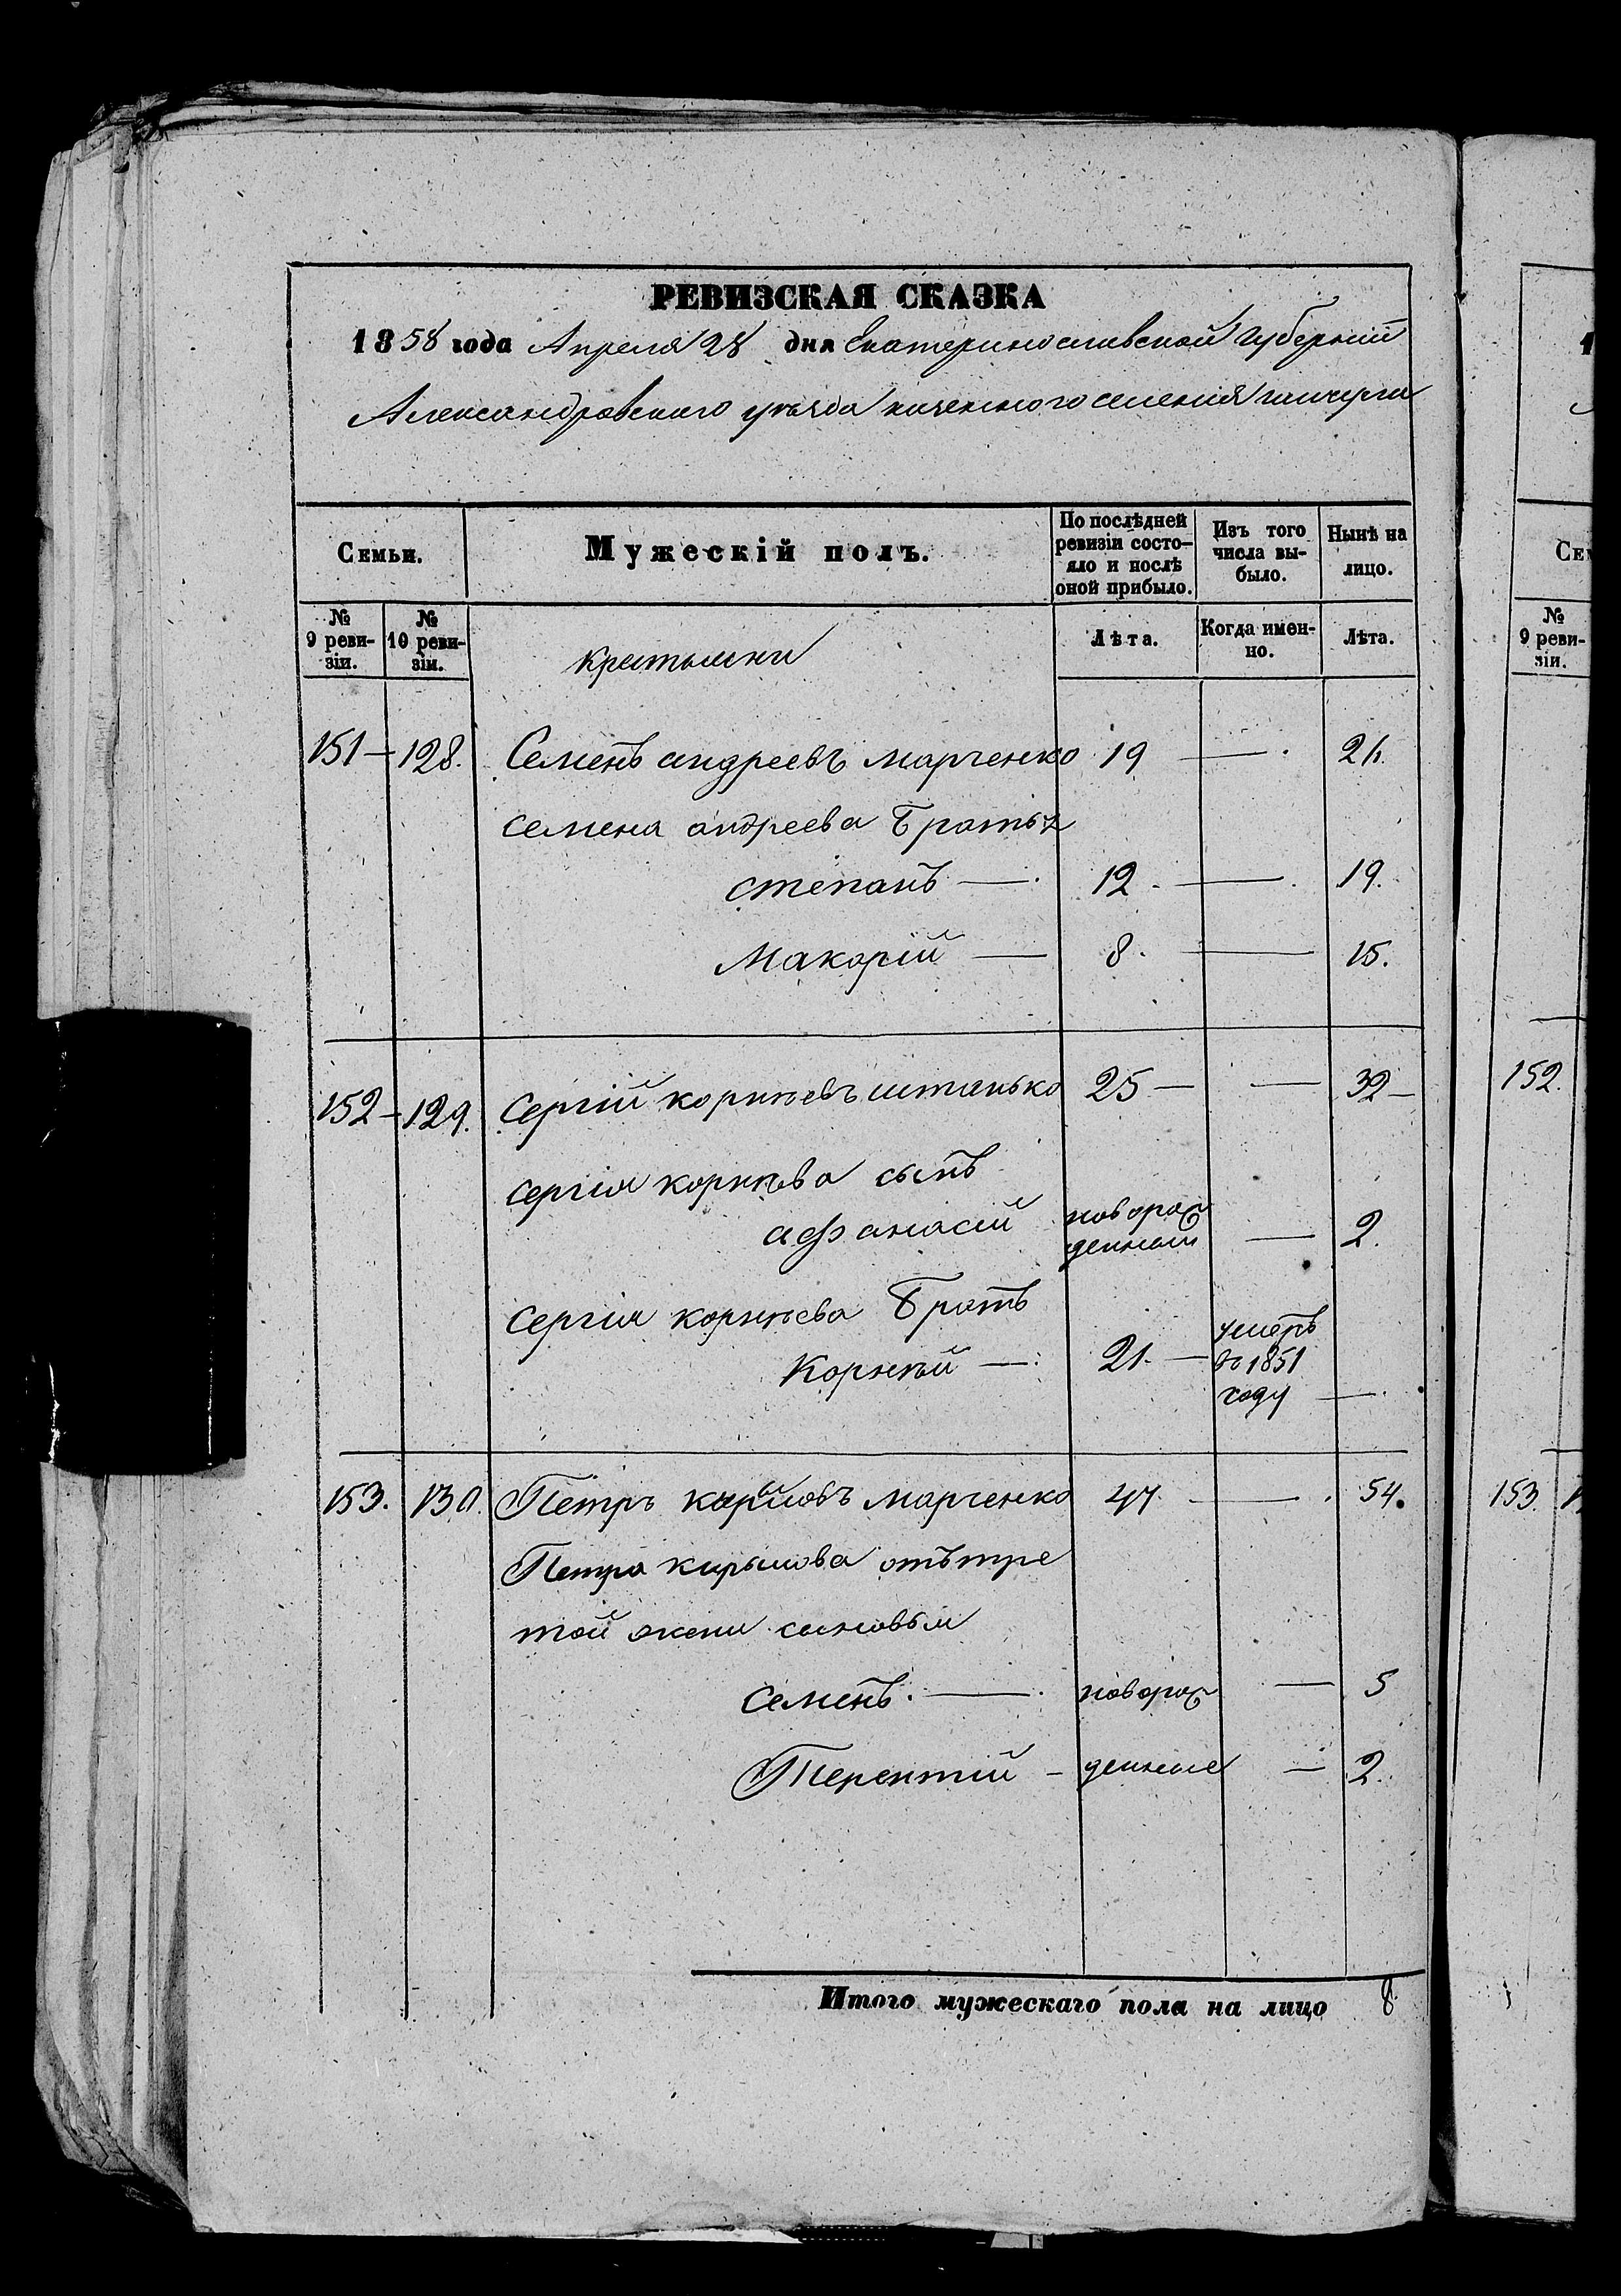 РЕВИЗСКАЯ СКАЗКА
1858 года Апреля 28 дня Екатеринославской Губернии
Александровского уезда казенного селения гайчула
Семьи.
Мужескій полъ.
По послѣдней ревизіи состо-
яло и послѣ оной прибыло.
Изъ того числа вы-
было.
Нынѣ на лицо.
№ 9 реви-
зіи.
№ 10 реви-
зіи.
крестьяни
Лѣта.
Когда имен-
но.
Лѣта.
151 — 128. Семенъ андреевъ марченко 19 — 26.
семена андреева Братья
степанъ — 12. — 19.
Макорій — 8. — 15.
152 — 129. Сергій корнеевъ штанько 25 — — 32 —
сергія корнѣва сынъ
афанасій новорож
денный — 2.
сергія корнѣева Братъ
Корнѣй — 21. — умеръ
въ 1851
году —
153. 130. Петръ кириловъ марченко 47 — 54.
Петра кирылова отътре
той жени сыновья
семенъ. — новорож — 5
Терентій — денные — 2.
Итого мужескаго пола на лицо 8
1
Сем
№ 9 реви-
зіи.
152.
153.